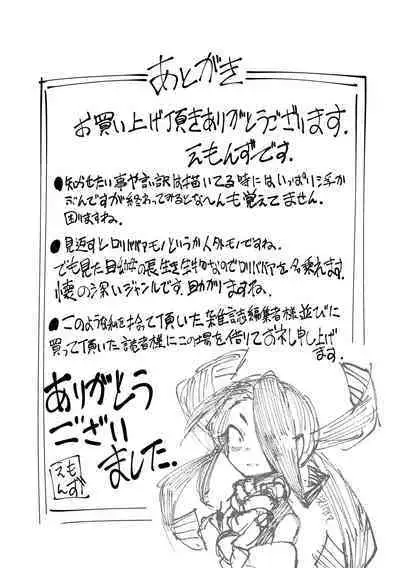 あとがき
お買い上げ頂きありがとうございます。
えもんずです。
●知らせたい事や言い訳は描いてる時にはいっぱい浮か
ぶんですが終わってみるとなーんも覚えてません。
困りますね。
●見返すとロリババアモノというか人外モノですね。
でも見た目幼女の長生き生物なのでロリババアを名乗れます。
懐の深いジャンルです。助かりますね。
●このような私を拾って頂いた雑誌編集者様並びに
買って頂いた読者様にこの場を借りてお礼申し上げ
ます。
ありがとう
ござい
ました。
えも
んず